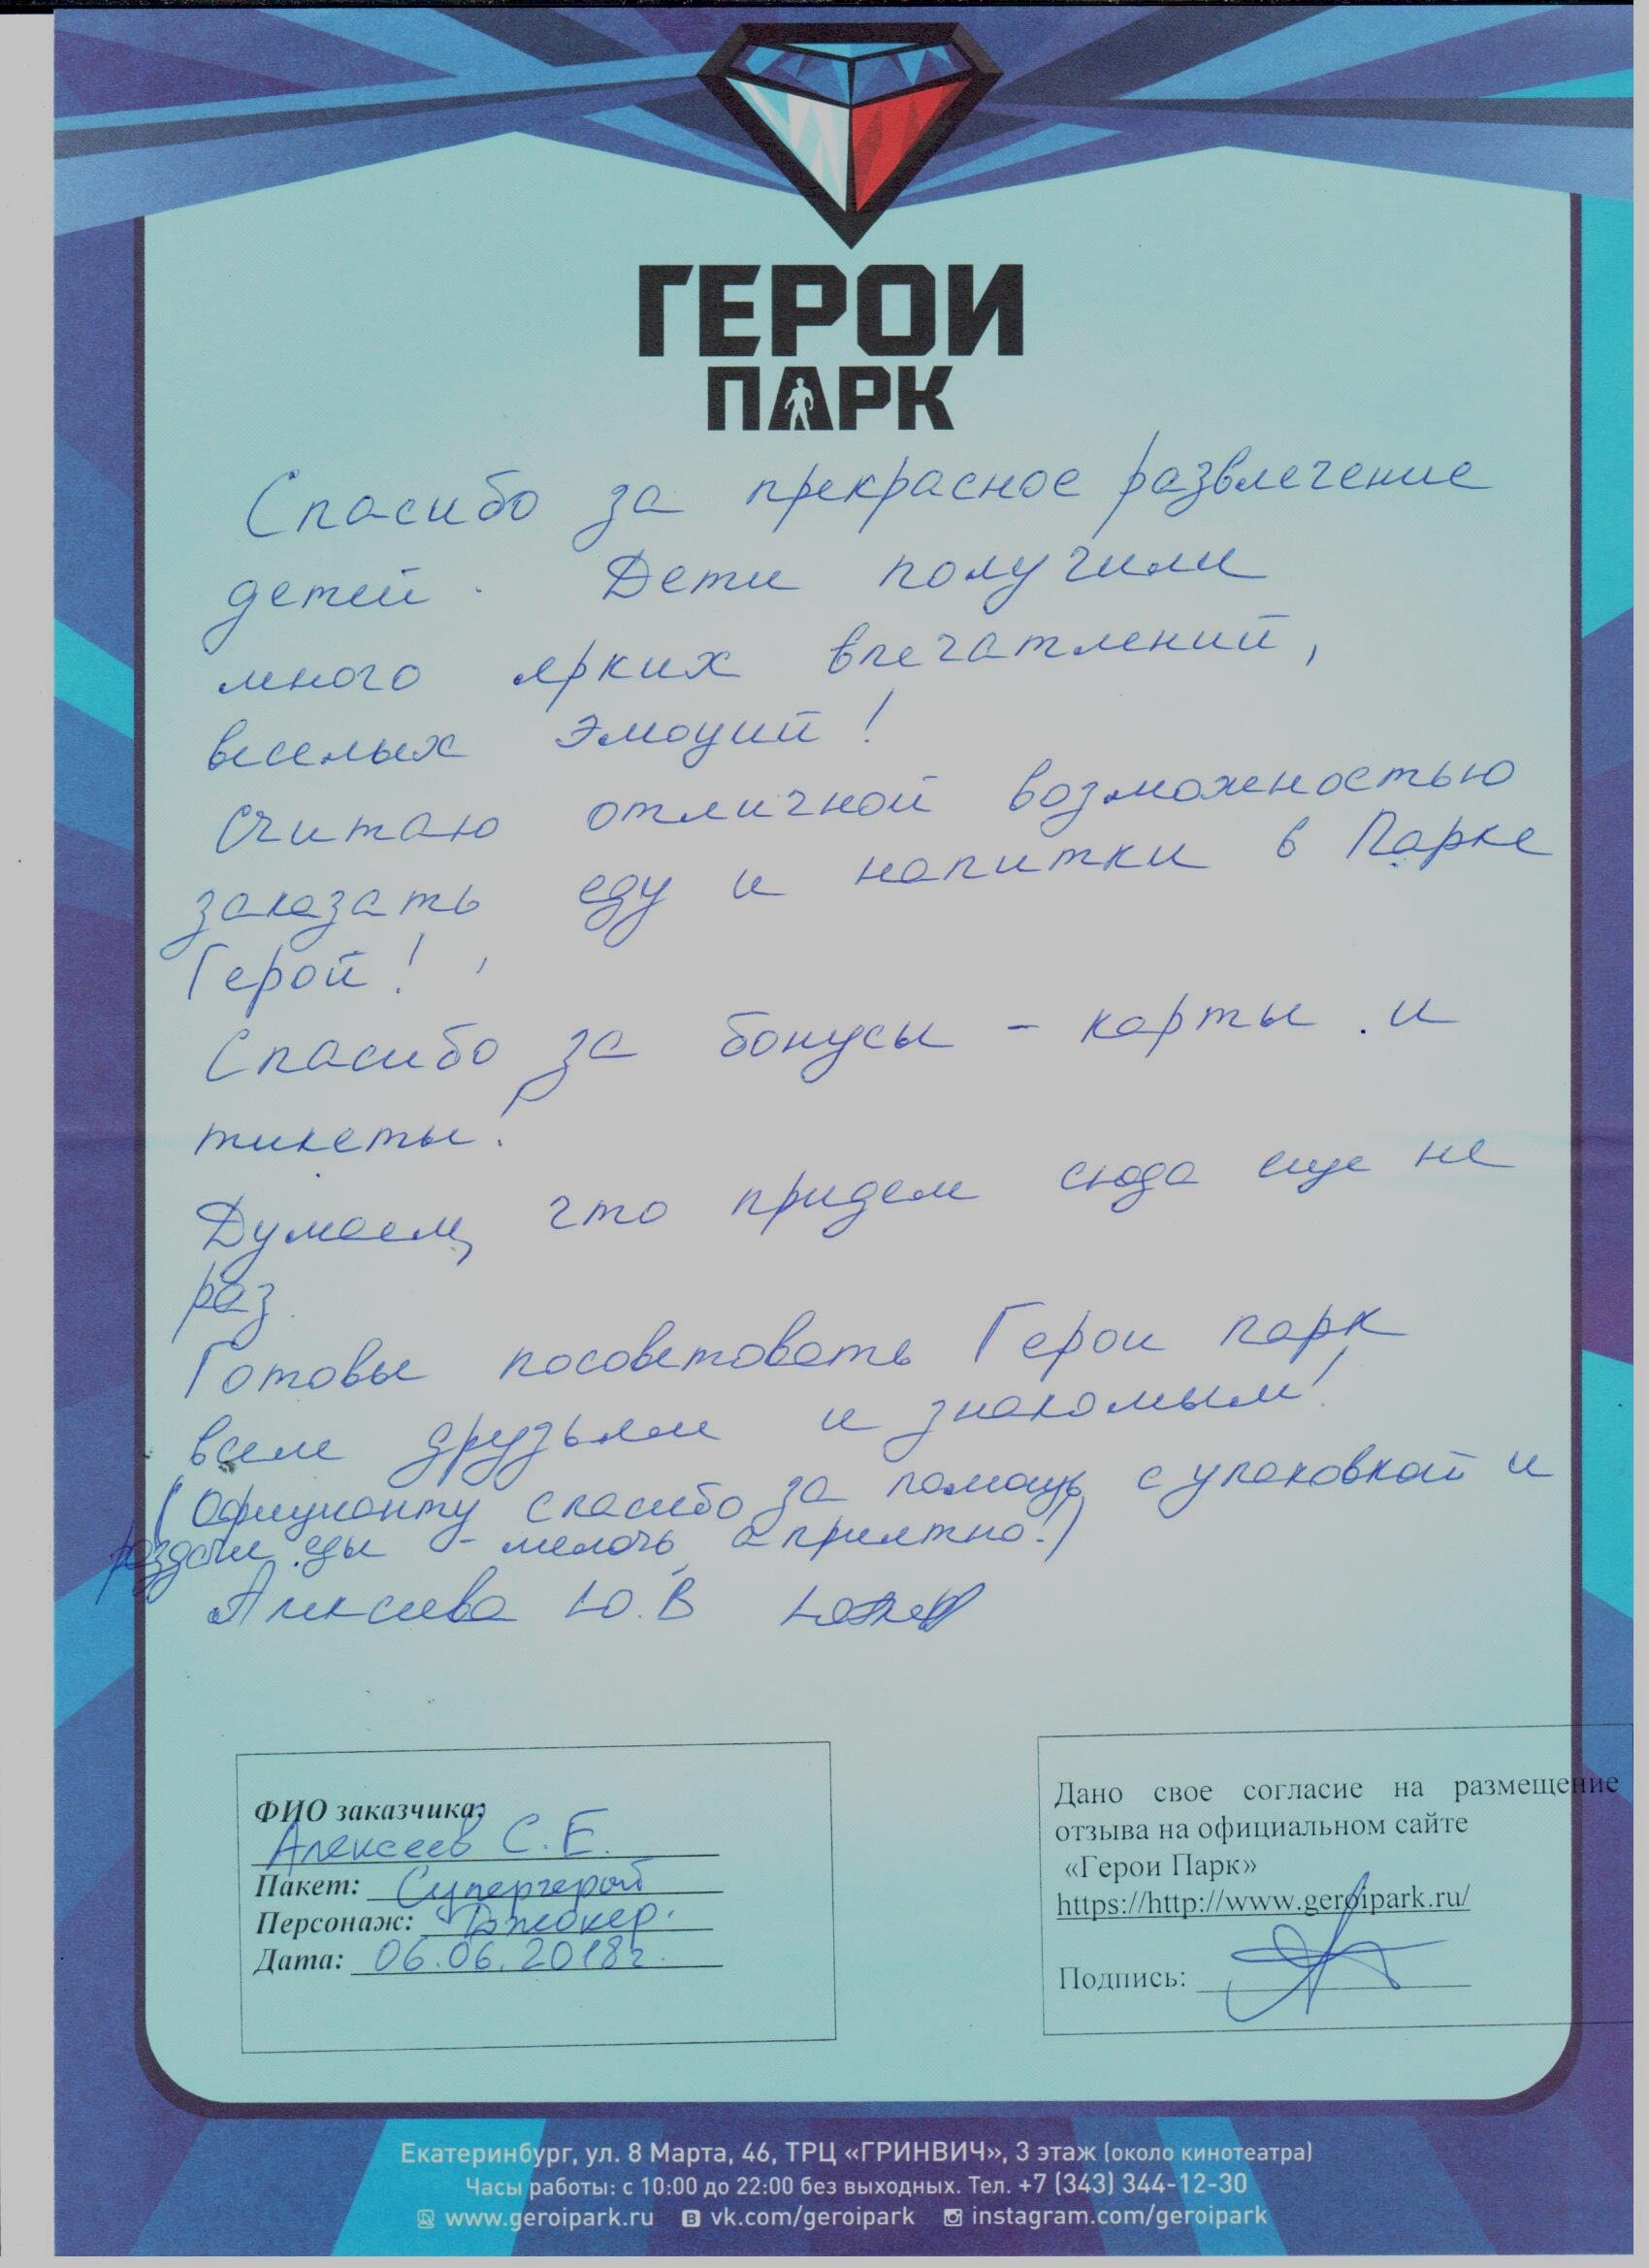 ГЕРОИ
ПАРК
Спасибо за прекрасное развлечение
детей. Дети получили
много ярких впечатлений,
веселых эмоций!
Считаю отличной возможностью
заказать еду и напитки в Парке
Герой!
Спасибо за бонусы - карты и
тикеты!
Думаем, что придем сюда еще не
раз.
Готовы посоветовать Герои парк
всем друзьям и знакомым!
(Официанту спасибо за помощь с упаковкой и
раздачи еды - мелочь, а приятно!)
Алексеева Ю.В
ФИО заказчика:
Алексеев С.Е.
Пакет: Супергерой
Персонаж: Джокер.
Дата: 06.06.2018г.
Дано свое согласие на размещение
отзыва на официальном сайте
«Герои Парк»
https://http://www.geroipark.ru/
Подпись:
Екатеринбург, ул. 8 Марта, 46, ТРЦ «ГРИНВИЧ», 3 этаж (около кинотеатра)
Часы работы: с 10:00 до 22:00 без выходных. Тел. +7 (343) 344-12-30
www.geroipark.ru vk.com/geroipark instagram.com/geroipark